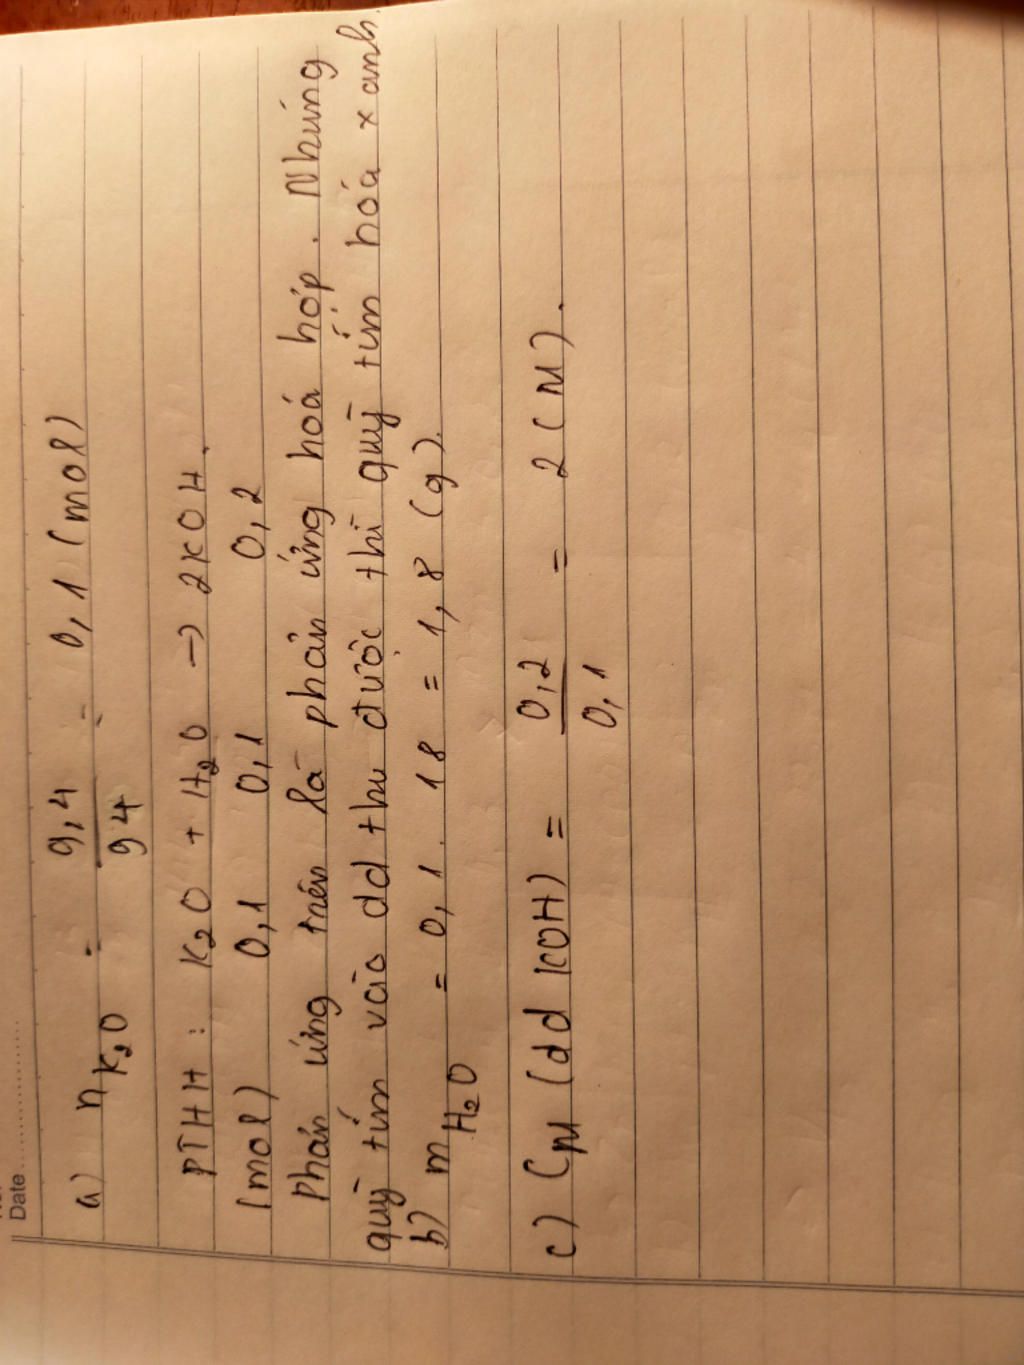 Date
a) n K₂O = 9,4 / 94 = 0,1 (mol)
PTHH : K₂O + H₂O → 2KOH.
(mol) 0,1 0,1 0,2
Phản ứng trên là phản ứng hoá hợp. Nhúng
quỳ tím vào dd thu được thì quỳ tím hóa xanh.
b) m H₂O = 0,1 . 18 = 1,8 (g).
c) CM (dd KOH) = 0,2 / 0,1 = 2 (M).